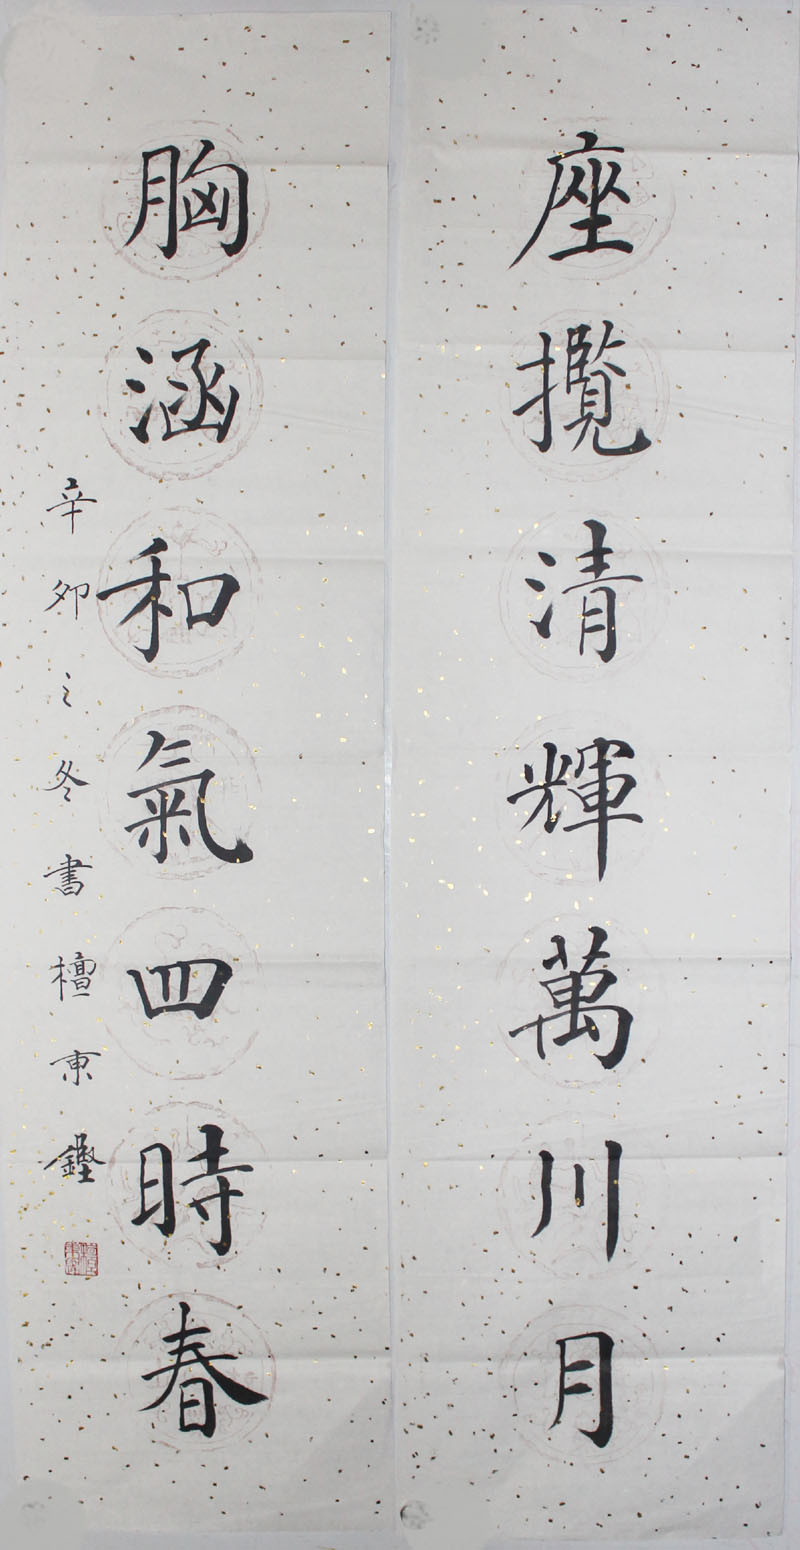 座攬清輝萬川月
胸涵和氣四時春
辛卯之冬書檀東鏗